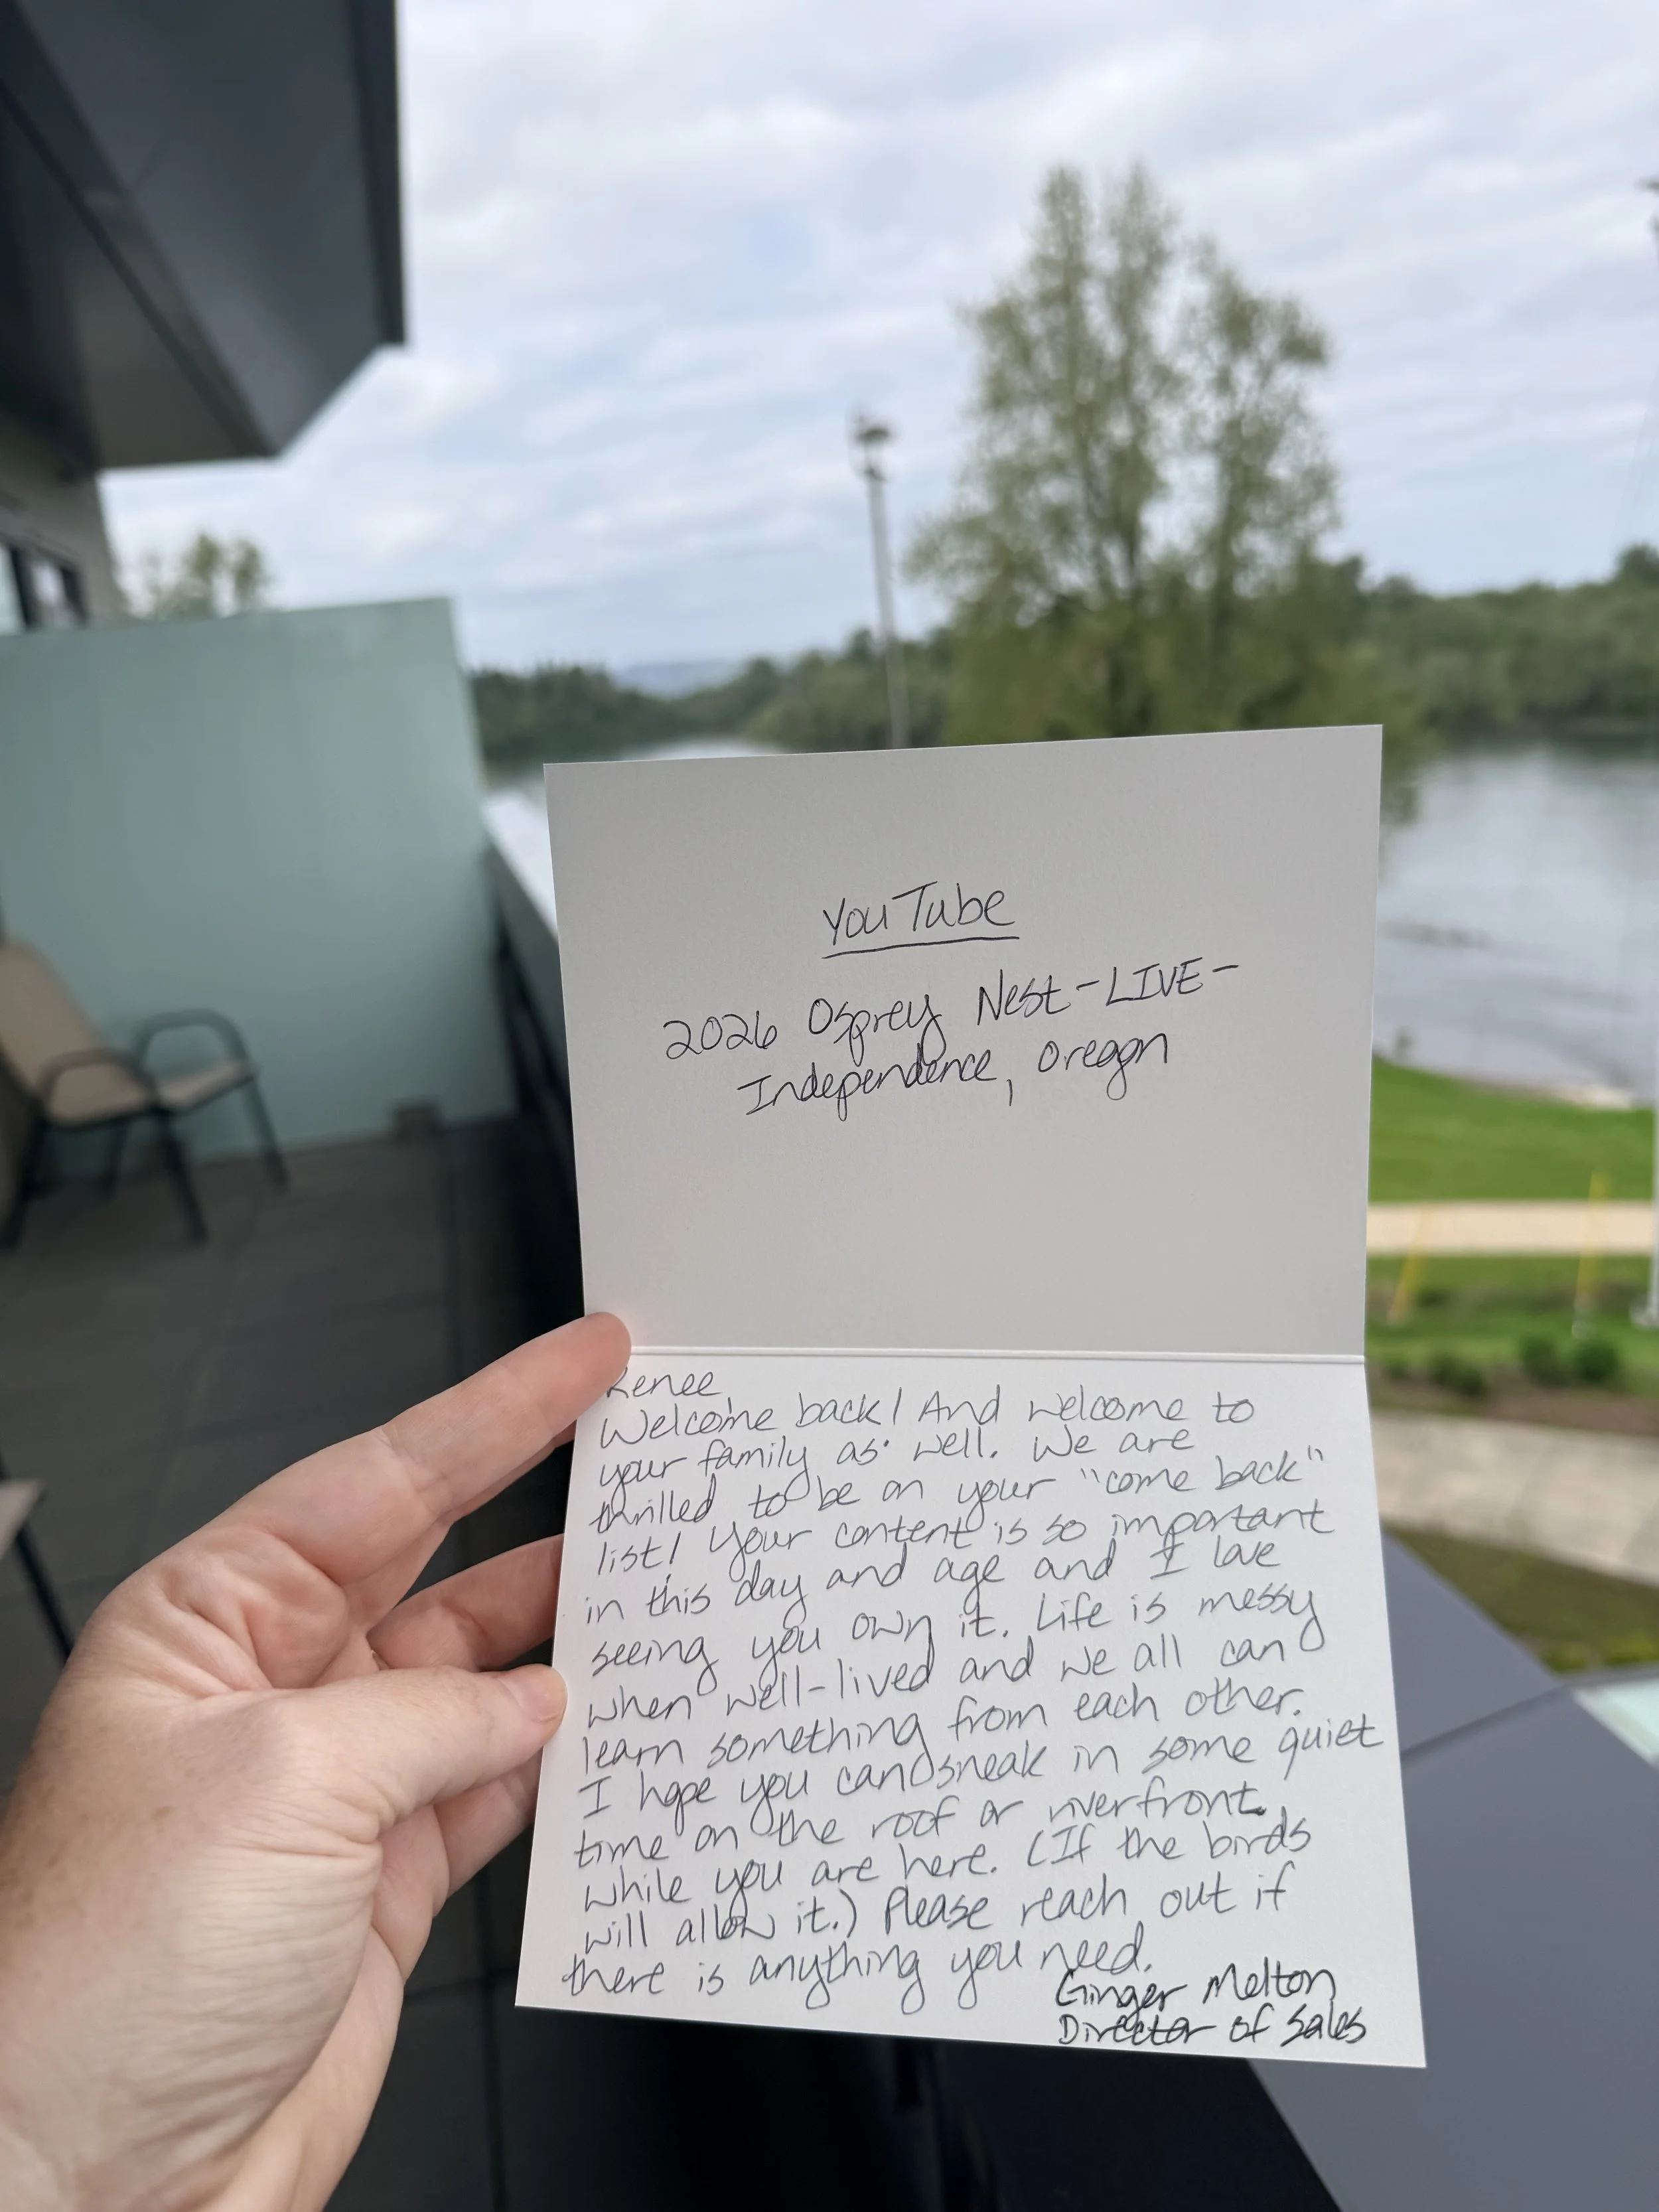 YouTube
2026 Osprey Nest-LIVE-
Independence, Oregon
Renee,
Welcome back! And welcome to
your family as well. We are
thrilled to be on your "come back"
list! Your content is so important
in this day and age and I love
seeing you own it. Life is messy
when well-lived and we all can
learn something from each other.
I hope you can sneak in some quiet
time on the roof or riverfront
while you are here. (If the birds
will allow it.) Please reach out if
there is anything you need.
Ginger Melton
Director of Sales